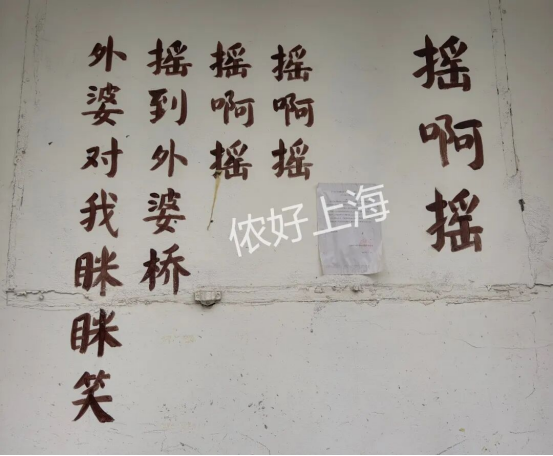 摇啊摇
摇啊摇
摇啊摇
摇到外婆桥
外婆对我眯眯笑
侬好上海